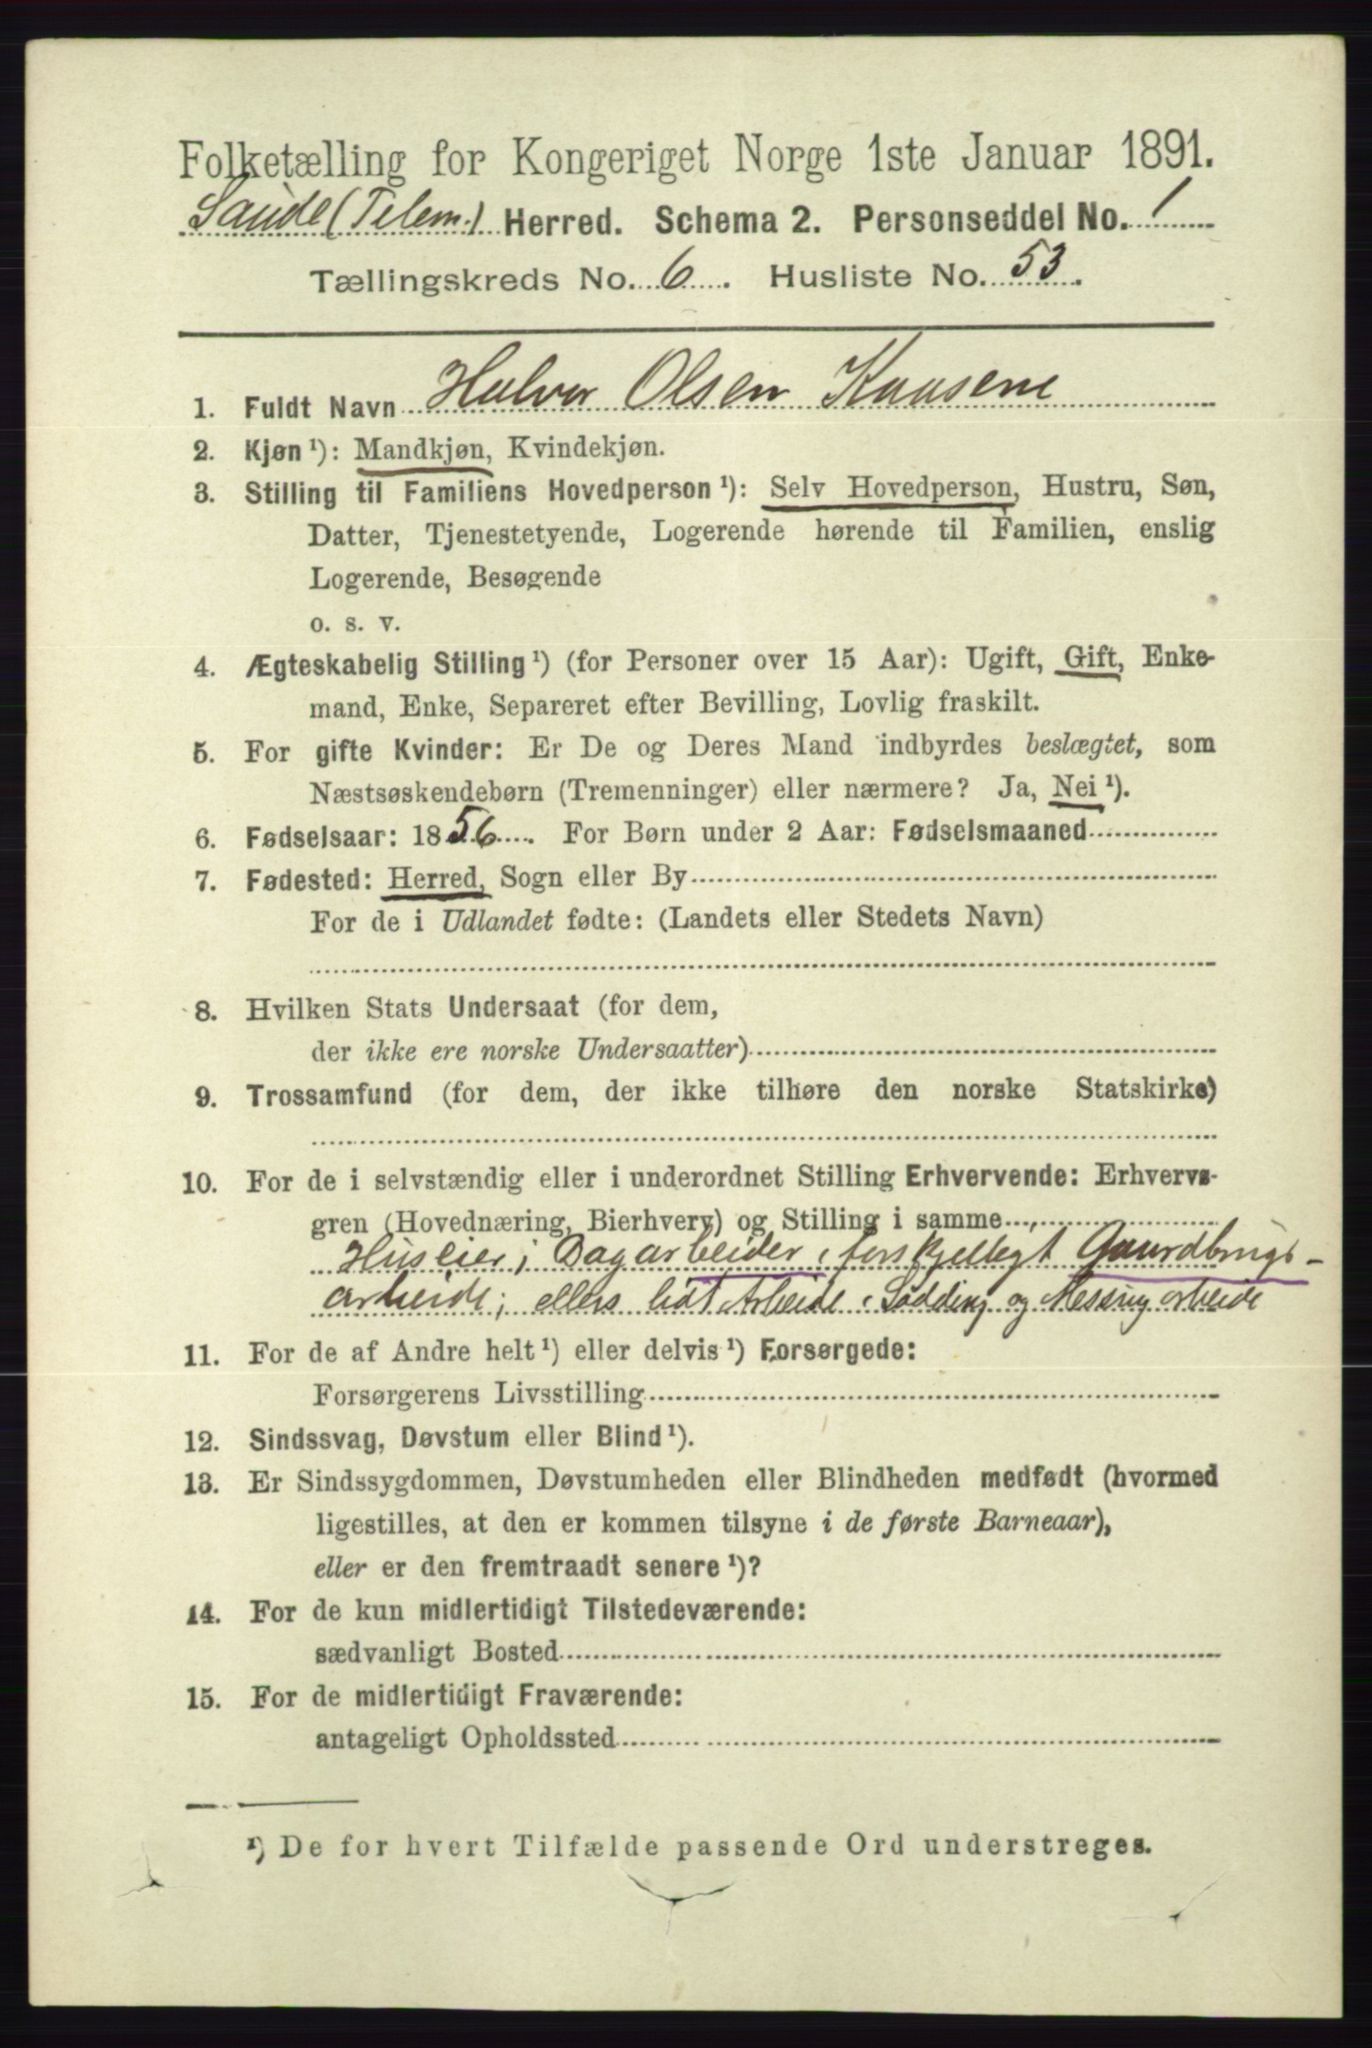 Folketælling for Kongeriget Norge 1ste Januar 1891.
Saude (Telem.) Herred. Schema 2. Personseddel No. 1
Tællingskreds No. 6. Husliste No. 53.
1. Fuldt Navn Halvor Olsen Kaasene
2. Kjøn¹): Mandkjøn, Kvindekjøn.
3. Stilling til Familiens Hovedperson¹): Selv Hovedperson, Hustru, Søn,
Datter, Tjenestetyende, Logerende hørende til Familien, enslig
Logerende, Besøgende
o. s. v.
4. Ægteskabelig Stilling¹) (for Personer over 15 Aar): Ugift, Gift, Enke-
mand, Enke, Separeret efter Bevilling, Lovlig fraskilt.
5. For gifte Kvinder: Er De og Deres Mand indbyrdes beslægtet, som
Næstsøskendebørn (Tremenninger) eller nærmere? Ja, Nei¹).
6. Fødselsaar: 1856. For Børn under 2 Aar: Fødselsmaaned
7. Fødested: Herred, Sogn eller By
For de i Udlandet fødte: (Landets eller Stedets Navn)
8. Hvilken Stats Undersaat (for dem,
der ikke ere norske Undersaatter)
9. Trossamfund (for dem, der ikke tilhøre den norske Statskirke)
10. For de i selvstændig eller i underordnet Stilling Erhvervende: Erhvervs-
gren (Hovednæring, Bierhverv) og Stilling i samme
Huseier; Dagarbeider i forskjelligt Gaardbrugs-
arbeide; ellers lidt Arbeide i Lodding og Messingarbeide
11. For de af Andre helt¹) eller delvis¹) Forsørgede:
Forsørgerens Livsstilling
12. Sindssvag, Døvstum eller Blind¹).
13. Er Sindssygdommen, Døvstumheden eller Blindheden medfødt (hvormed
ligestilles, at den er kommen tilsyne i de første Barneaar),
eller er den fremtraadt senere¹)?
14. For de kun midlertidigt Tilstedeværende:
sædvanligt Bosted
15. For de midlertidigt Fraværende:
antageligt Opholdssted
¹) De for hvert Tilfælde passende Ord understreges.